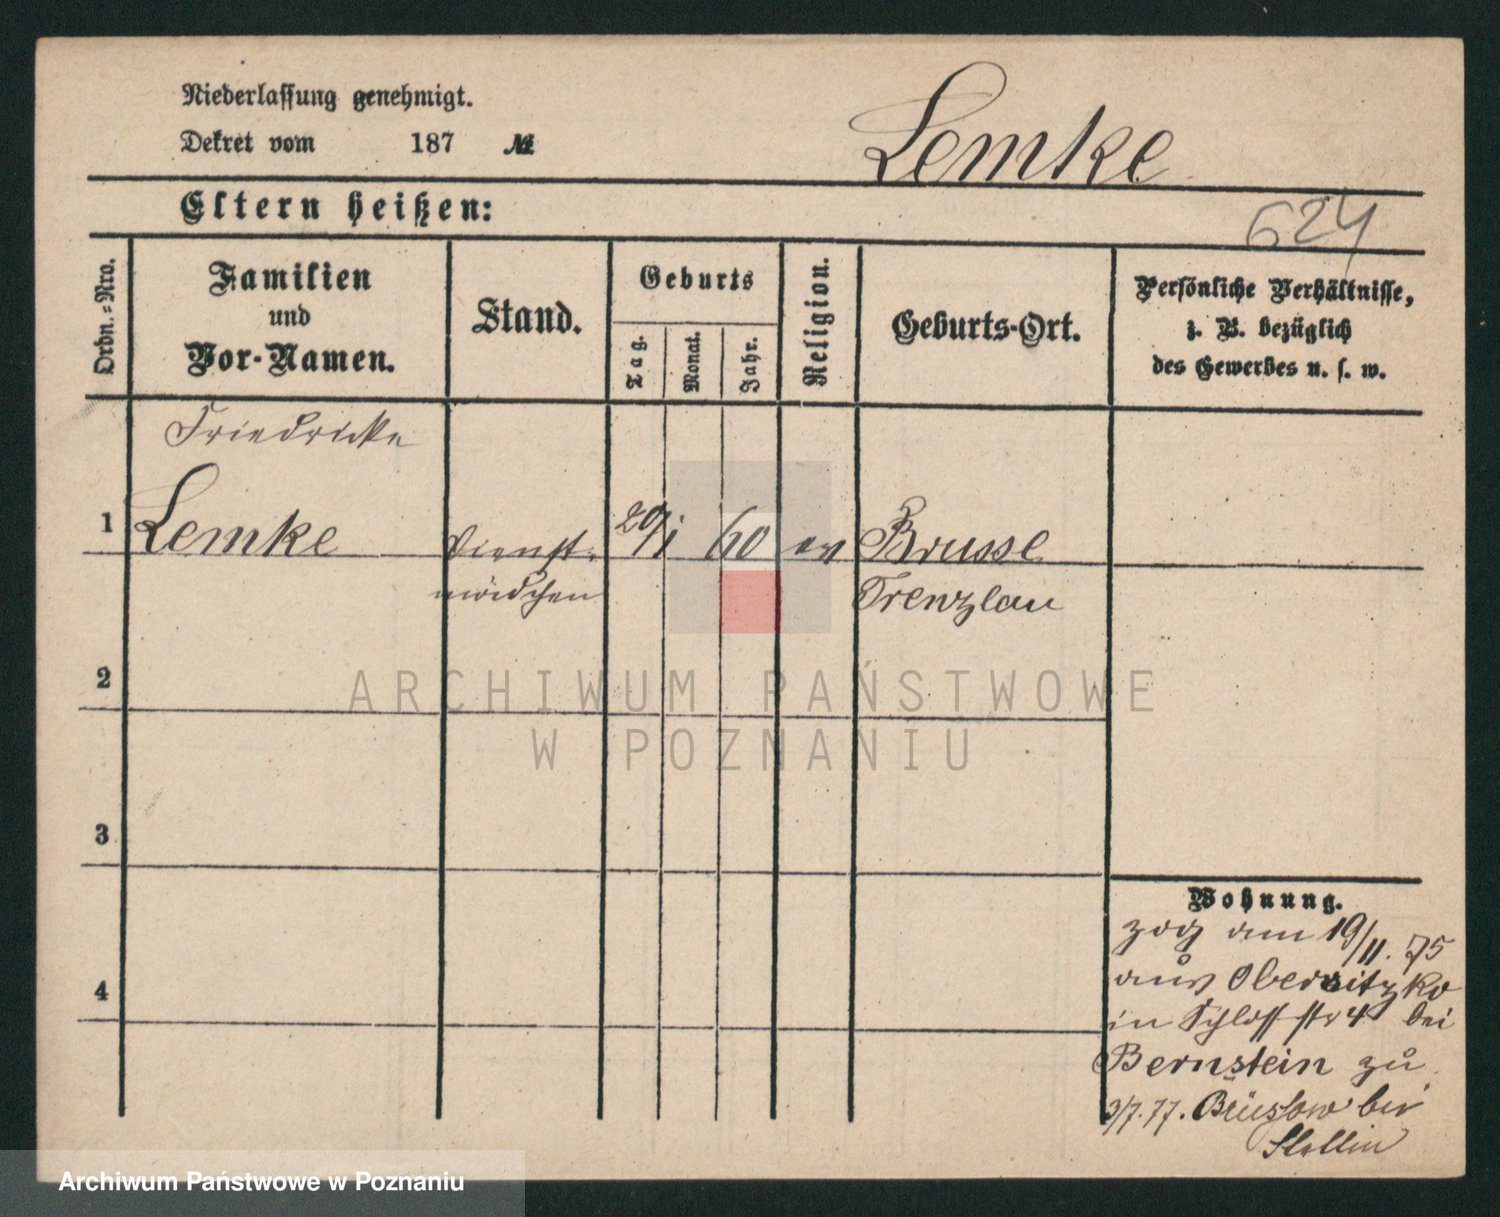 Niederlassung genehmigt.
Dekret vom 187 №
Lemke
Eltern heißen:
624
Ordn.-Nro.
Familien
und
Vor-Namen.
Stand.
Geburts
Tag.
Monat.
Jahr.
Religion.
Geburts-Ort.
Persönliche Verhältnisse,
z. B. bezüglich
des Gewerbes u. s. w.
Friedricke
1 Lemke Dienst- 20/1 60 ev Brussl
mädchen Prenzlau
2
ARCHIWUM PAŃSTWOWE
W POZNANIU
3
Wohnung.
zog am 19/11. 75
aus Obersitzko
in Schloss str 4 bei
Bernstein zu
3/7.77. Brüssow bei
Stettin
4
Archiwum Państwowe w Poznaniu